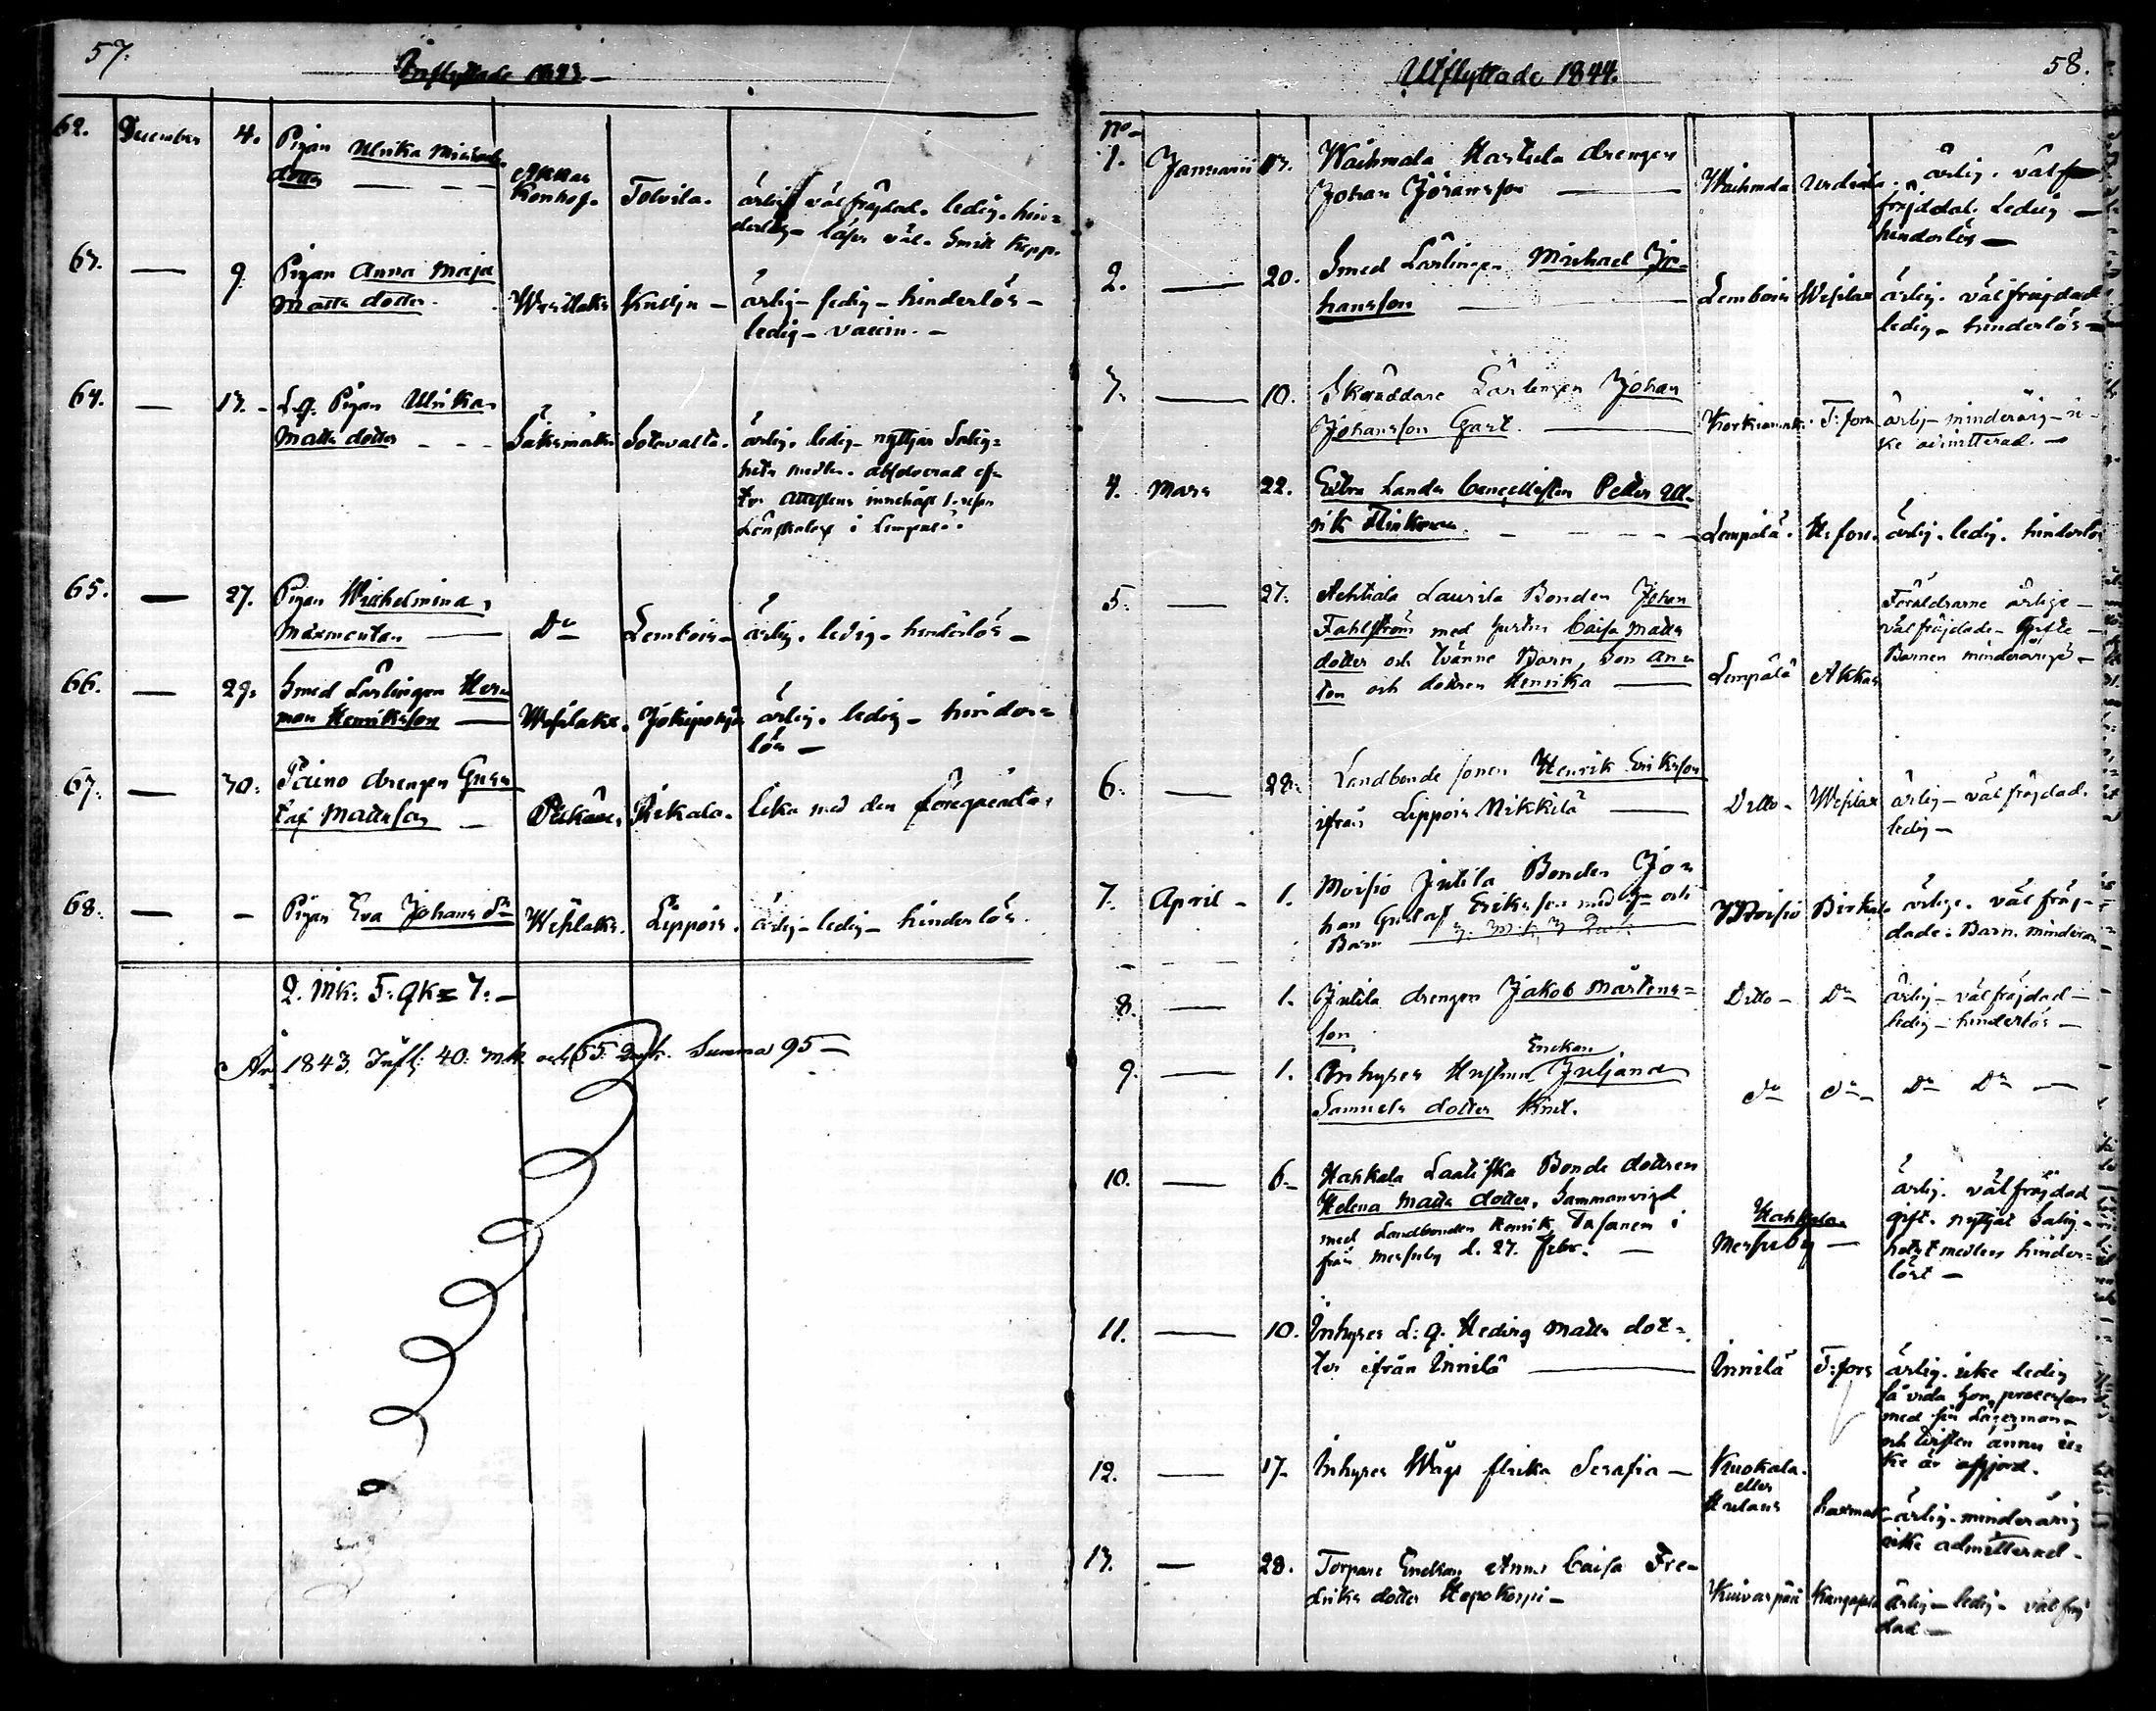 57.
Inflyttade 1843
62. December 4. Pigan Ulrika Michaels
dotter Akkas
Konhof. Tolvila. ärlig väl frägdad. ledig. hin=
derlös läser väl. Smitt Kopp.
63. — 9 Pigan Anna Maja
Matts dotter. Wesilaks ärlig – ledig – hinderlös –
ledig – vaccin. –
64. — 13. L. q. Pigan Ulrika
Matts dotter Sääksmäki Sotavalta. ärlig. ledig – nyttjar Salig=
hets medlen. absolverad ef=
ter attestens innehåll
i Lempälä.
65. — 27. Pigan Wilhelmina
Dn Lembois – ärlig. ledig – hinderlös –
66. — 29. Smed Lärlingen Her=
man Henriksson — Wesilaks. Jokipohja ärlig. ledig – hinder=
lös –
67. — 30. Paino drengen Gus=
taf Mattsson Pelkäne. lika med den föregående
68. — – Pigan Eva Johans Dr Wesilaks. Lippois. ärlig – ledig – hinderlös.
2. Mk: 5: qk = 7: –
År 1843. Infl: 40: mk och 55: qvk. Summa 95 –
58.
Utflyttade 1844.
No
1. Januarii 13. Waihmala Hartula drengen
Johan Jöransson — Waihmala ärlig. väl
frajdad. Ledig —
hinderlös —
2. — 20. Smed Lärlingen Michael Jo=
hansson — Lembois Wesilax ärlig. väl frajdad
ledig – hinderlös –
3. — 10. Skräddare Lärlingen Johan
Johansson Gart. — T: fors ärlig – minderårig – ic=
ke admitterad. –
4. Mars 22. Extra Lands Cancellisten Petter Ul=
rik Flinkman. Lempälä. H: fors. ärlig. ledig. hinderlös
5: — 27. Aehtiala Laurila Bonden Johan
Fahlström med hustru Caisa Matts
dotter och tvänne Barn, Son An=
ton och dottren Henrika — Lempälä Akkas
Föräldrarne ärlige –
väl fräjdade – Gifte –
Barnen minderårige –
6. — 28. Landbonde sonen Henrik Eriksson
ifrån Lippois Nikkilä — Ditto – Wesilax ärlig – väl frägdad.
ledig –
7. April – 1. Moisio Jutila Bonden Jo=
han Gustaf Eriksson med hu och
Barn Moisio Birkala ärlige. väl fräj=
dade. Barn. minderår
8. — 1. Jutila drengen Jakob Mårtens=
son Ditto – Dn ärlig – väl fräjdad –
ledig – hinderlös –
9. — 1. Inhyses Enckan Juljana
Samuels dotter Kint. Dn Dn Dn Dn —
10. — 6 – Hahkala Laatiska Bonde dottren
Helena Matts dotter, Sammanvigd
med Landbonden Henrik Tasanen i
från Messuby d. 27. Febr. — Hahkala
Messuby — ärlig. väl fräjdad
gift. nyttjat Salig=
hetstmedlen hinder=
löst –
11. — 10. Inhyses L: q. Hedvig Matts dot=
ter ifrån Innilä — Innilä T: fors ärlig. icke ledig
så vida hon
med sin Lägerman
och tvisten ännu ic=
ke är afgjord.
12. — 17. Inhyses Ulrika Serafia — Kuokala.
eller
ärlig – minderårig
icke admitterad –
13. — 28. Torpare Enckan Anna Caisa Fre=
driks dotter Hepokorpi – Kuivaspää Kangasala ärlig – ledig – väl fräj
dad —